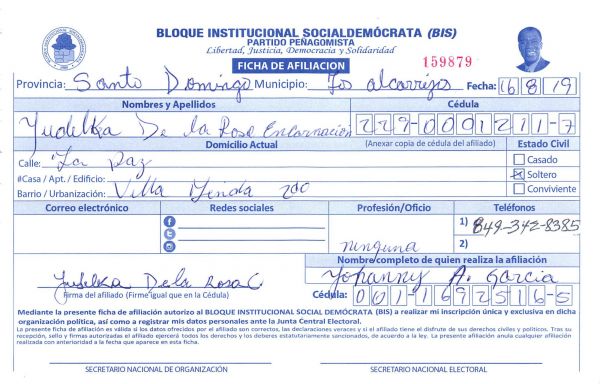 BLOQUE INSTITUCIONAL SOCIALDEMÓCRATA (BIS)
PARTIDO PEÑAGOMISTA
Libertad, Justicia, Democracia y Solidaridad
FICHA DE AFILIACION
159879
Provincia: Santo Domingo Municipio: Los alcarrizos Fecha: 16 8 19
Nombres y Apellidos Cédula
Yudelka De la Rosa Encarnación 229-0091211-7
Domicilio Actual (Anexar copia de cédula del afiliado) Estado Civil
Calle: La Paz Casado
#Casa / Apt. / Edificio: Soltero
Barrio / Urbanización: Villa Linda Conviviente
Correo electrónico Redes sociales Profesión/Oficio Teléfonos
1) 849-342-8385
ninguna 2)
Nombre completo de quien realiza la afiliación
Yudelka De la Rosa Yohanny A. Garcia
Firma del afiliado (Firme igual que en la Cédula) Cédula: 001-1692516-5
Mediante la presente ficha de afiliación autorizo al BLOQUE INSTITUCIONAL SOCIAL DEMÓCRATA (BIS) a realizar mi inscripción única y exclusiva en dicha
organización política, así como a registrar mis datos personales ante la Junta Central Electoral.
La presente ficha de afiliación es válida si los datos ofrecidos por el afiliado son correctos, las declaraciones veraces y si el afiliado tiene el disfrute de sus derechos civiles y políticos. Tras su
recepción, sello y firmas autorizadas el afiliado ejercerá todos los derechos y los deberes estatutariamente sancionados, de acuerdo a la ley. La presente afiliación anula cualquier afiliación
realizada con anterioridad a la fecha que aparece en esta ficha.
SECRETARIO NACIONAL DE ORGANIZACIÓN SECRETARIO NACIONAL ELECTORAL